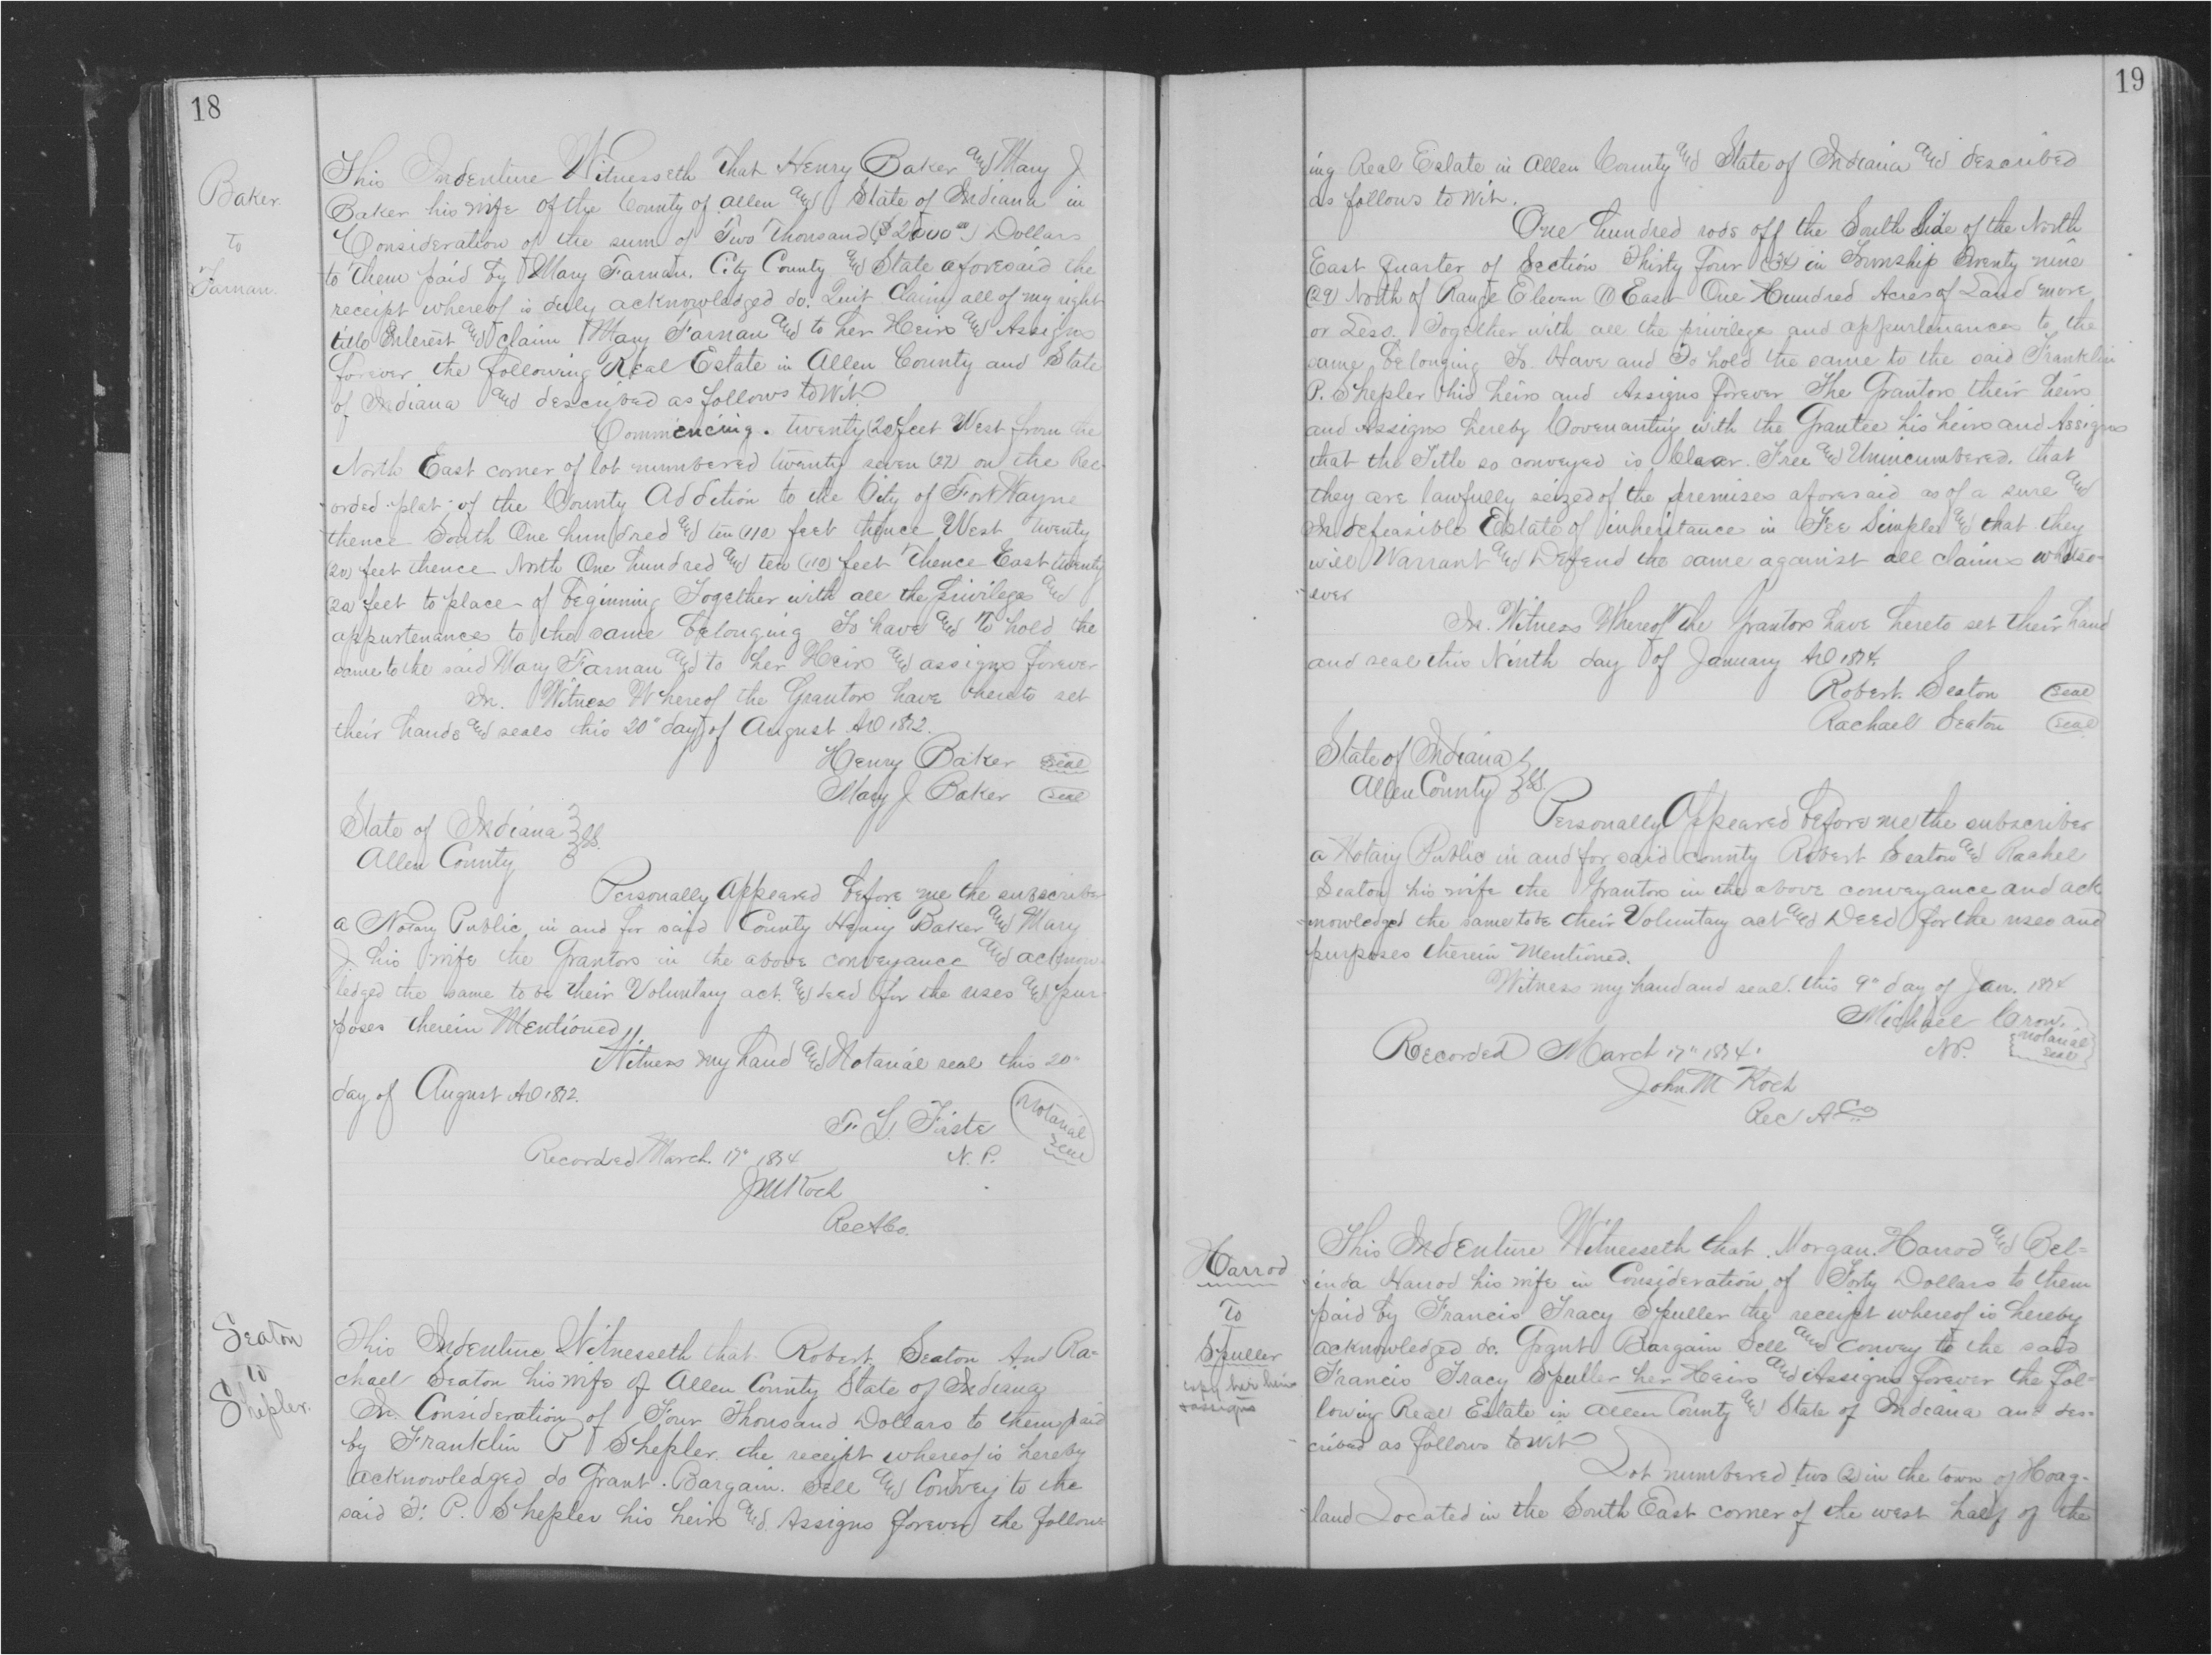 18
Baker
to
Farnan.
This Indenture Witnesseth That Henry Baker and Mary J
Baker his wife of the County of Allen and State of Indiana in
Consideration of the sum of Two Thousand ($2000 00) Dollars
to them paid by Mary Farnan. City County and State aforesaid the
receipt whereof is duly acknowledged do. Quit Claim all of my right
title Interest and claim Mary Farnan and to her Heirs and Assigns
forever the following Real Estate in Allen County and State
of Indiana and described as follows to Wit.
Commencing. twenty (20) feet West from the
North East corner of lot numbered twenty seven (27) on the Rec-
orded plat of the County Addition to the City of Fort Wayne
thence South One hundred and ten (110) feet thence West twenty
(20) feet thence North One hundred and ten (110) feet thence East twenty
(20) feet to place of beginning Together with all the privileges and
appurtenances to the same belonging To have and To hold the
same to the said Mary Farnan and to her Heirs and assigns forever
In. Witness Whereof the Grantors have hereto set
their hands and seals this 20" day of August AD 1872.
Henry Baker seal
Mary J Baker seal
State of Indiana
Allen County ss.
Personally Appeared before me the subscriber
a Notary Public in and for said County Henry Baker and Mary
J his wife the Grantors in the above conveyance and acknow-
ledged the same to be their Voluntary act and deed for the uses and pur-
poses therein Mentioned
Witness my hand and Notarial seal this 20"
day of August AD 1872.
Notarial seal
N. P.
Recorded March. 17" 1874
J M Koch
Rec A Co.
Seaton
to
Shepler.
This Indenture Witnesseth that. Robert Seaton And Ra-
chael Seaton his wife of Allen County State of Indiana
In Consideration of Four Thousand Dollars to them paid
by Franklin P Shepler. the receipt whereof is hereby
acknowledged do Grant. Bargain. Sell and Convey to the
said F. P. Shepler his heirs and Assigns forever the follow-
19
ing Real Estate in Allen County and State of Indiana and described
as follows to Wit.
One hundred rods off the South Side of the North
East quarter of Section Thirty Four (34) in Township Twenty nine
(29) North of Range Eleven (11) East One Hundred Acres of Land more
or Less. Together with all the privileges and appurtenances to the
same belonging To Have and To hold the same to the said Franklin
P. Shepler his heirs and Assigns forever The Grantors their heirs
and Assigns hereby Covenanting with the Grantee his heirs and Assigns
that the Title so conveyed is Clear. Free and Unincumbered. that
they are lawfully seized of the premises aforesaid as of a sure and
Indefeasible Estate of inheritance in Fee Simple and that they
will Warrant and Defend the same against all claims whatso-
ever
In. Witness Whereof the Grantors have hereto set their hand
and seal this Ninth day of January AD 1874.
Robert. Seaton seal
Rachael Seaton seal
State of Indiana
Allen County ss.
Personally Appeared before me the subscriber
a Notary Public in and for said county Robert Seaton and Rachel
Seaton his wife the Grantors in the above conveyance and ack
nowledged the same to be their Voluntary act and Deed for the uses and
purposes therein Mentioned.
Witness my hand and seal. this 9" day of Jan. 1874
Michael Crow.
N.P. notarial seal
Recorded March 17" 1874.
John M Koch
Rec A Co
Harrod
To
Spuller
copy her heirs
& assigns
This Indenture Witnesseth that. Morgan. Harrod and Bel-
inda Harrod his wife in Consideration of Forty Dollars to them
paid by Francis Tracy Spuller the receipt whereof is hereby
acknowledged do. Grant Bargain Sell and Convey to the said
Francis Tracy Spuller her Heirs and Assigns forever the fol-
lowing Real Estate in Allen County and State of Indiana and des-
cribed as follows to Wit
Lot numbered two (2) in the town of Hoag-
land Located in the South East corner of the west half of the